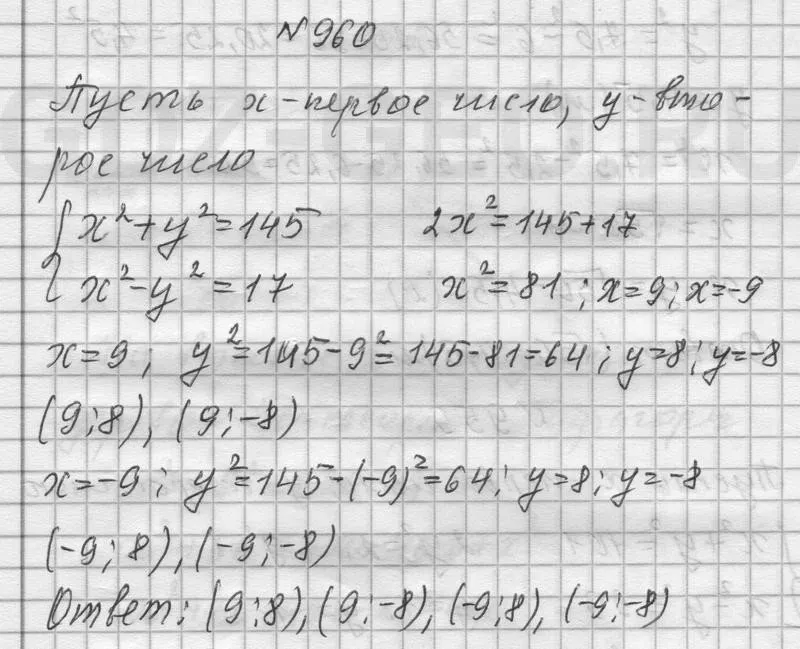 №960
Пусть x - первое число, y - вто-
рое число
{ x² + y² = 145     2x² = 145 + 17
{ x² - y² = 17     x² = 81; x = 9; x = -9
x = 9; y² = 145 - 9² = 145 - 81 = 64; y = 8; y = -8
(9; 8), (9; -8)
x = -9; y² = 145 - (-9)² = 64; y = 8; y = -8
(-9; 8), (-9; -8)
Ответ: (9; 8), (9; -8), (-9; 8), (-9; -8)